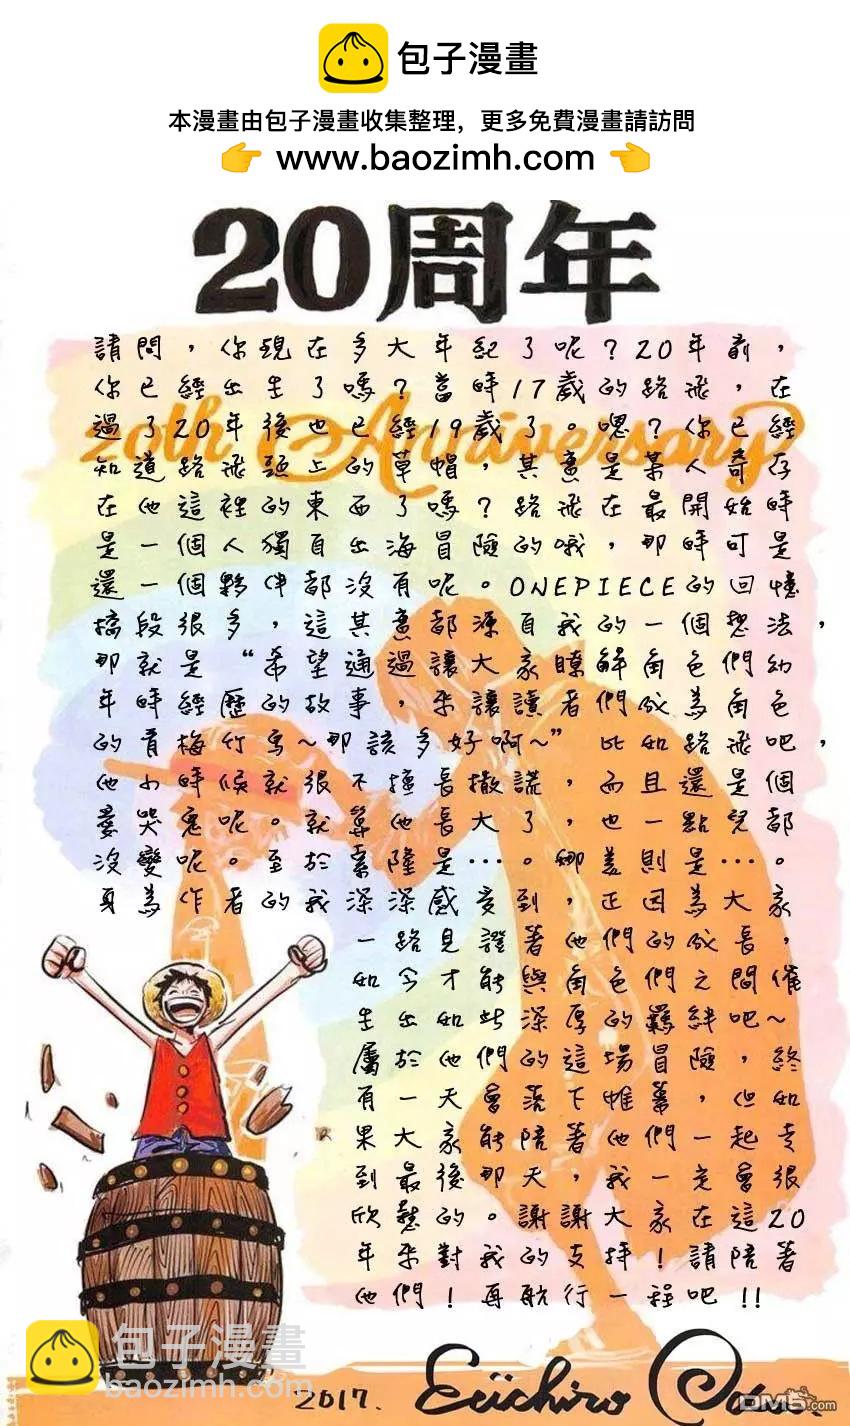 包子漫畫
本漫畫由包子漫畫收集整理，更多免費漫畫請訪問
👉 www.baozimh.com 👈
20周年
20th Anniversary
請問，你現在多大年紀了呢？20年前，
你已經出生了嗎？當時17歲的路飛，在
過了20年後也已經19歲了。嗯？你已經
知道路飛頭上的草帽，其實是某人寄存
在他這裡的東西了嗎？路飛在最開始時
是一個人獨自出海冒險的哦，那時可是
還一個夥伴都沒有呢。ONEPIECE的回憶
橋段很多，這其實都源自我的一個想法，
那就是“希望通過讓大家瞭解角色們幼
年時經歷的故事，來讓讀者們成為角色
的青梅竹馬~那該多好啊~” 比如路飛吧，
他小時候就很不擅長撒謊，而且還是個
愛哭鬼呢。就算他長大了，也一點兒都
沒變呢。至於索隆是…。娜美則是…。
身為作者的我深深感受到，正因為大家
一路見證著他們的成長，
如今才能與角色們之間催
生出如此深厚的羈絆吧~
屬於他們的這場冒險，終
有一天會落下帷幕，但如
果大家能陪著他們一起走
到最後那天，我一定會很
欣慰的。謝謝大家在這20
年來對我的支持！請陪著
他們！再航行一程吧!!
包子漫畫
baozimh.com
2017. Eiichiro Oda.
DM5.com